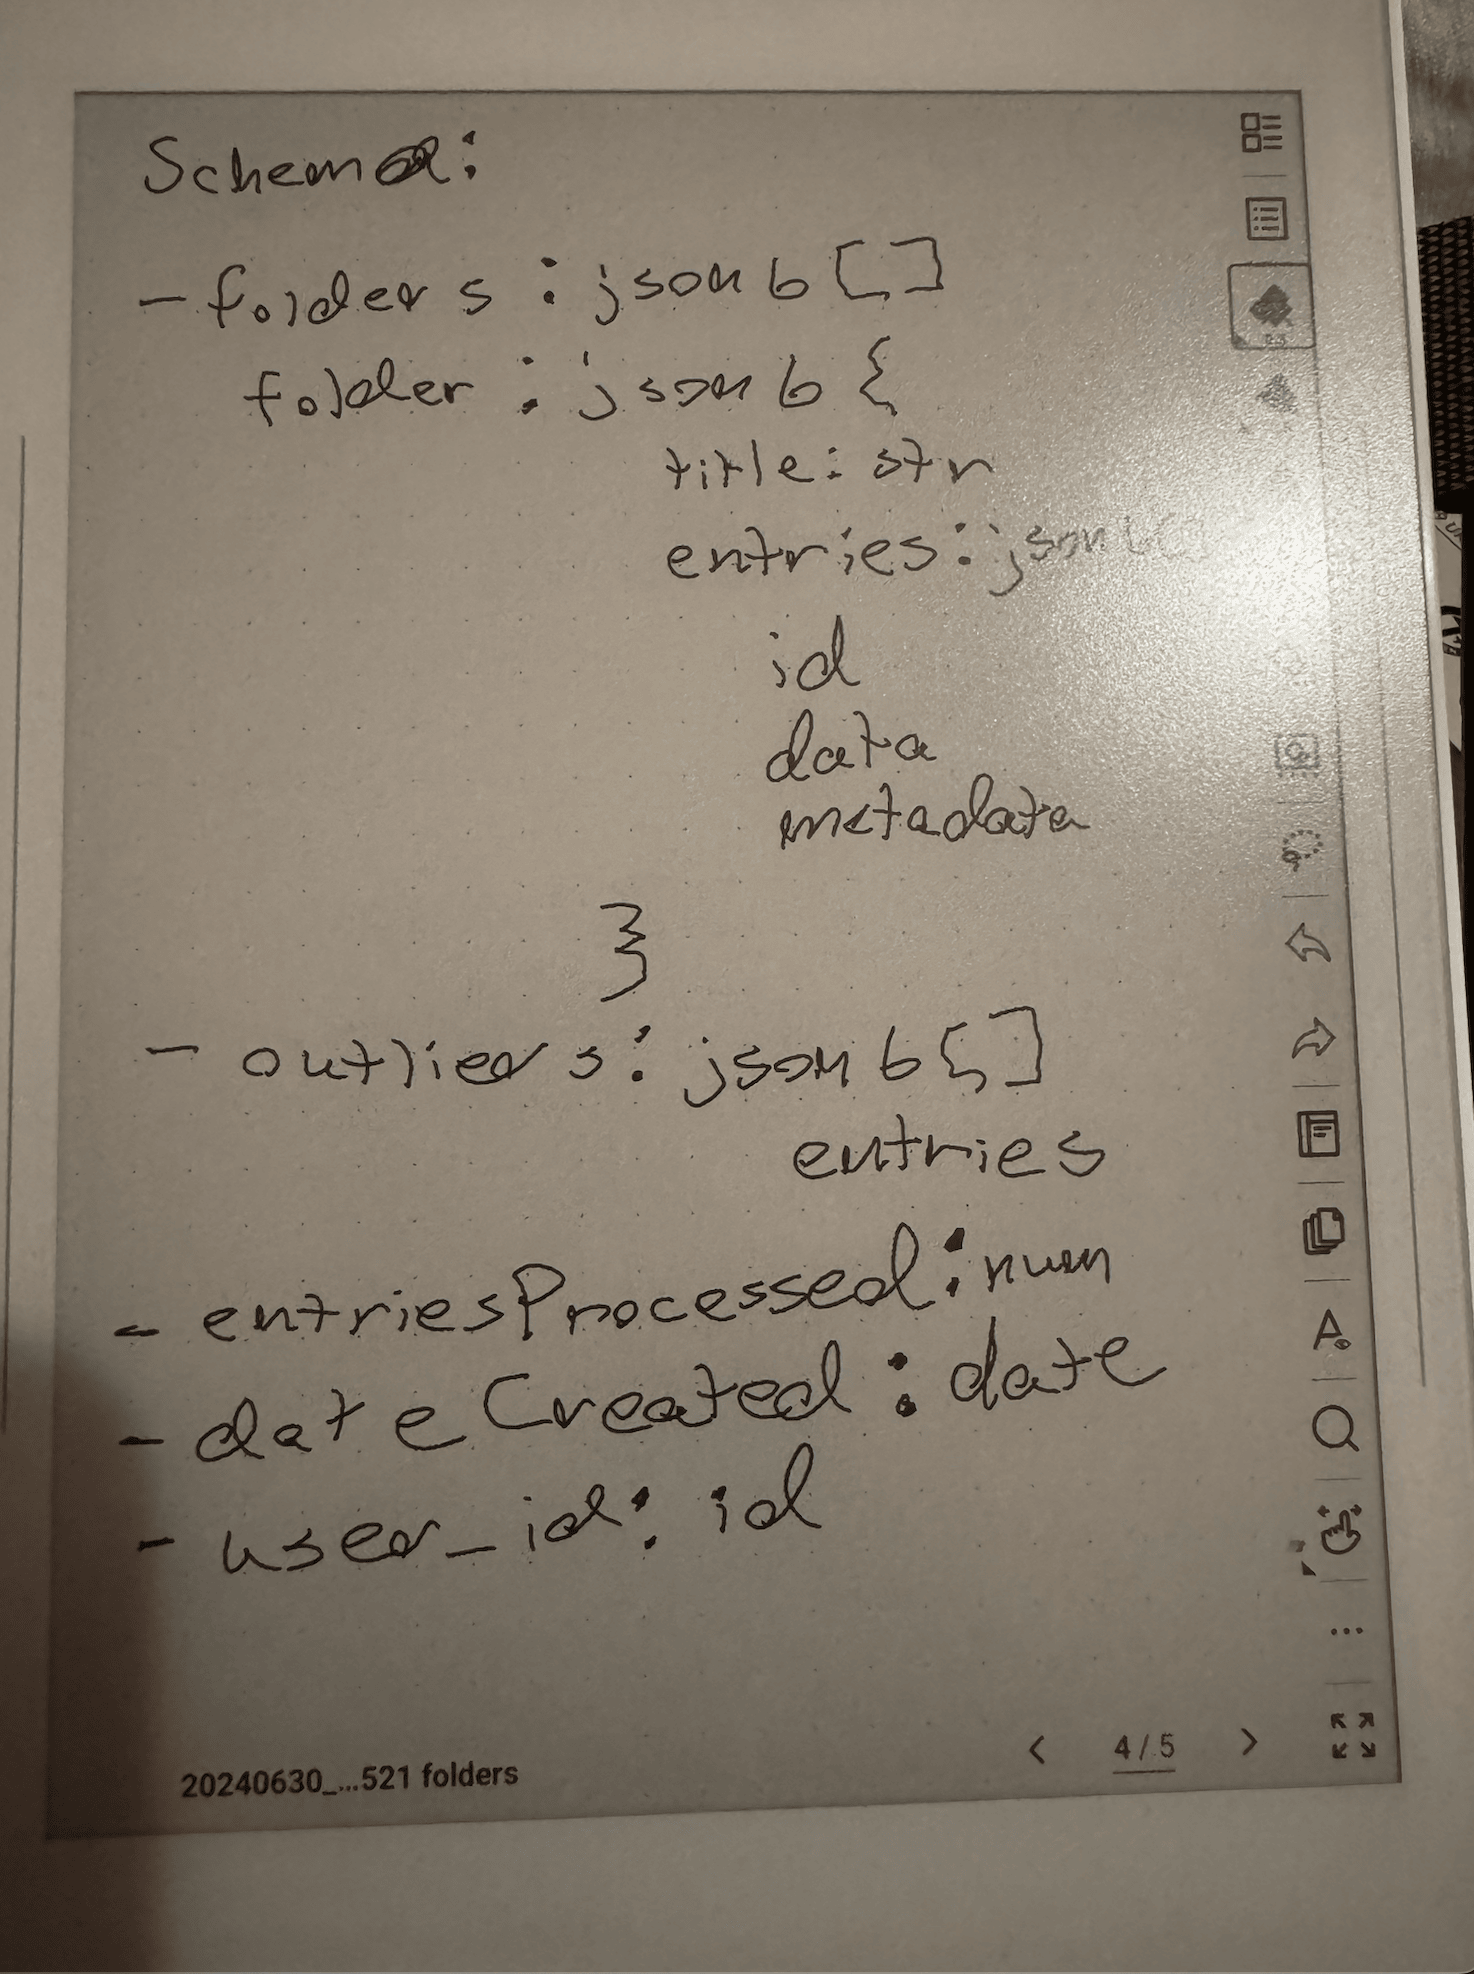 Schema:
- folders : jsonb []
folder : jsonb {
title: str
entries: jsonb
id
data
metadata
}
- outliers: jsonb []
entries
- entriesProcessed: num
- dateCreated: date
- user_id: id
20240630_...521 folders
< 4/5 >